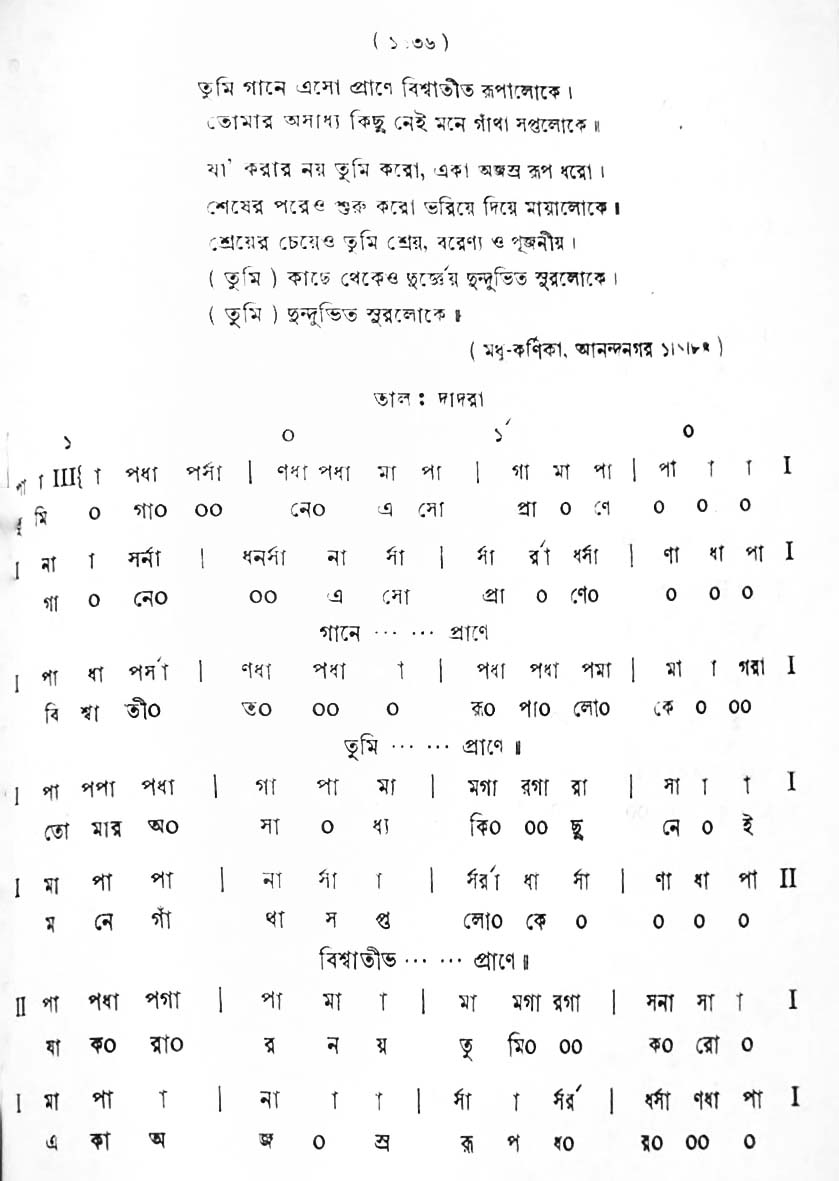 ( ১.৩৬ )
তুমি গানে এসো প্রাণে বিশ্বাতীত রূপালোকে ।
তোমার অসাধ্য কিছু নেই মনে গাঁথা সপ্তলোকে ॥
যা' করার নয় তুমি করো, একা অজস্র রূপ ধরো ।
শেষের পরেও শুরু করো ভরিয়ে দিয়ে মায়ালোকে ।
শ্রেয়ের চেয়েও তুমি শ্রেয়, বরেণ্য ও পূজনীয় ।
( তুমি ) কাছে থেকেও দুর্জ্ঞেয় দুন্দুভিত সুরলোকে ।
( তুমি ) দুন্দুভিত সুরলোকে ॥
( মধু-কর্ণিকা, আনন্দনগর
তাল : দাদরা
১ ০ ১´ ০
পা া III{ া পধা পর্সা | ণধা পধা মা পা | গা মা পা | পা া া I
{ মি ০ গা০ ০০ নে০ এ সো প্রা ০ ণে ০ ০ ০
I না া সর্না | ধনর্সা না র্সা | র্সা র্রা ধর্সা | ণা ধা পা I
গা ০ নে০ ০০ এ সো প্রা ০ ণে০ ০ ০ ০
গানে … … প্রাণে
I পা ধা পর্সা | ণধা পধা া | পধা পধা পমা | মা া গরা I
বি শ্বা তী০ ত০ ০০ ০ রূ০ পা০ লো০ কে ০ ০০
তুমি … … প্রাণে ॥
I পা পপা পধা | গা পা মা | মগা রগা রা | সা া া I
তো মার অ০ সা ০ ধ্য কি০ ০০ ছু নে ০ ই
I মা পা পা | না র্সা া | র্সর্রা ধা র্সা | ণা ধা পা II
ম নে গাঁ থা স প্ত লো০ কে ০ ০ ০ ০
বিশ্বাতীত … … প্রাণে ॥
II পা পধা পগা | পা মা া | মা মগা রগা | সনা সা া I
যা ক০ রা০ র ন য় তু মি০ ০০ ক০ রো ০
I মা পা া | না া া | র্সা া র্সর্র | ধর্সা ণধা পা I
এ কা অ জ ০ স্র রূ প ধ০ র০ ০০ ০